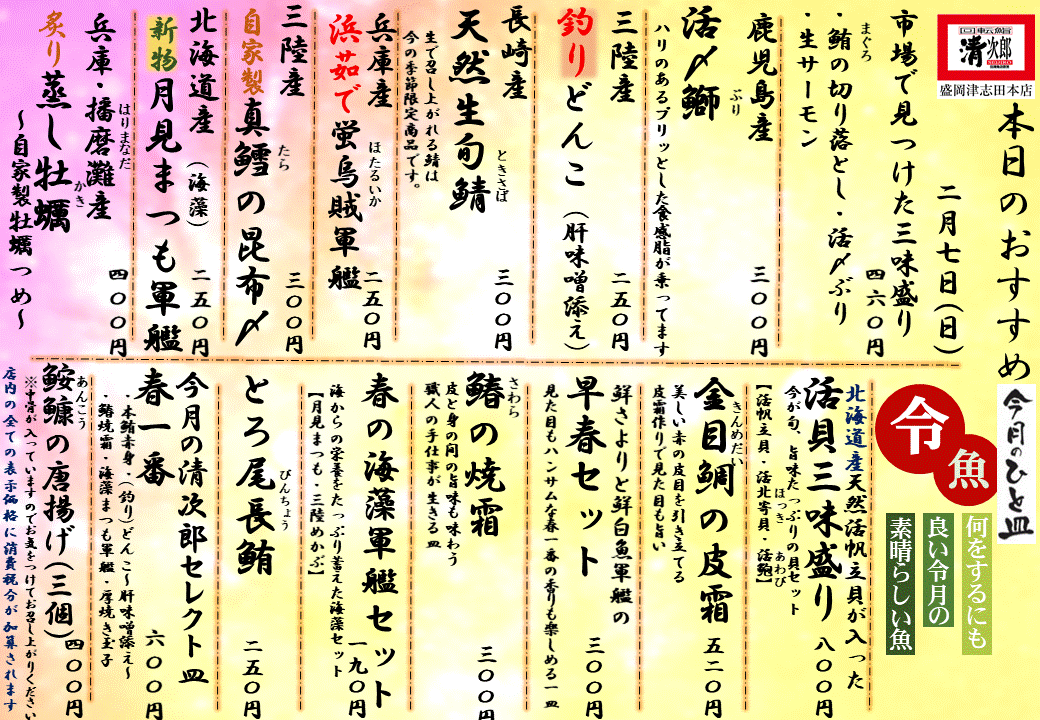 清次郎
盛岡津志田本店
本日のおすすめ
二月七日(日)
市場で見つけた三味盛り
まぐろ
・鮪の切り落とし・活〆ぶり
・生サーモン
四六〇円
鹿児島産
ぶり
活〆鰤
ハリのあるプリッとした食感脂が乗ってます
三〇〇円
三陸産
釣りどんこ(肝味噌添え)
二五〇円
長崎産
ときさば
天然生旬鯖
生で召し上がれる鯖は
今の季節限定商品です。
三〇〇円
兵庫産
ほたるいか
浜茹で蛍烏賊軍艦
二五〇円
三陸産
たら
自家製真鱈の昆布〆
三〇〇円
北海道産(海藻)
新物月見まつも軍艦
二五〇円
はりまなだ
兵庫・播磨灘産
かき
炙り蒸し牡蠣
~自家製牡蠣つめ~
四〇〇円
今月のひと皿
令魚
何をするにも
良い令月の
素晴らしい魚
北海道産天然活帆立貝が入った
活貝三味盛り
今が旬、旨味たっぷりの貝セット
ほっき
あわび
【活帆立貝・活北寄貝・活鮑】
八〇〇円
きんめだい
金目鯛の皮霜
美しい赤の皮目を引き立てる
皮霜作りで見た目も旨い
五二〇円
鮮さよりと鮮白魚軍艦の
早春セット
見た目もハンサムな春一番の香りも楽しめる一皿
三〇〇円
さわら
鰆の焼霜
皮と身の間の旨味も味わう
職人の手仕事が生きる皿
三〇〇円
春の海藻軍艦セット
海からの栄養をたっぷり蓄えた海藻セット
【月見まつも・三陸めかぶ】
一九〇円
びんちょう
とろ尾長鮪
二五〇円
今月の清次郎セレクト皿
春一番
・本鮪赤身・(釣り)どんこ~肝味噌添え~
・鰆焼霜・海藻まつも軍艦・厚焼き玉子
六〇〇円
あんこう
鮟鱇の唐揚げ(三個)
四〇〇円
※中骨が入っていますのでお気をつけてお召し上がりください
店内の全ての表示価格に消費税分が加算されます